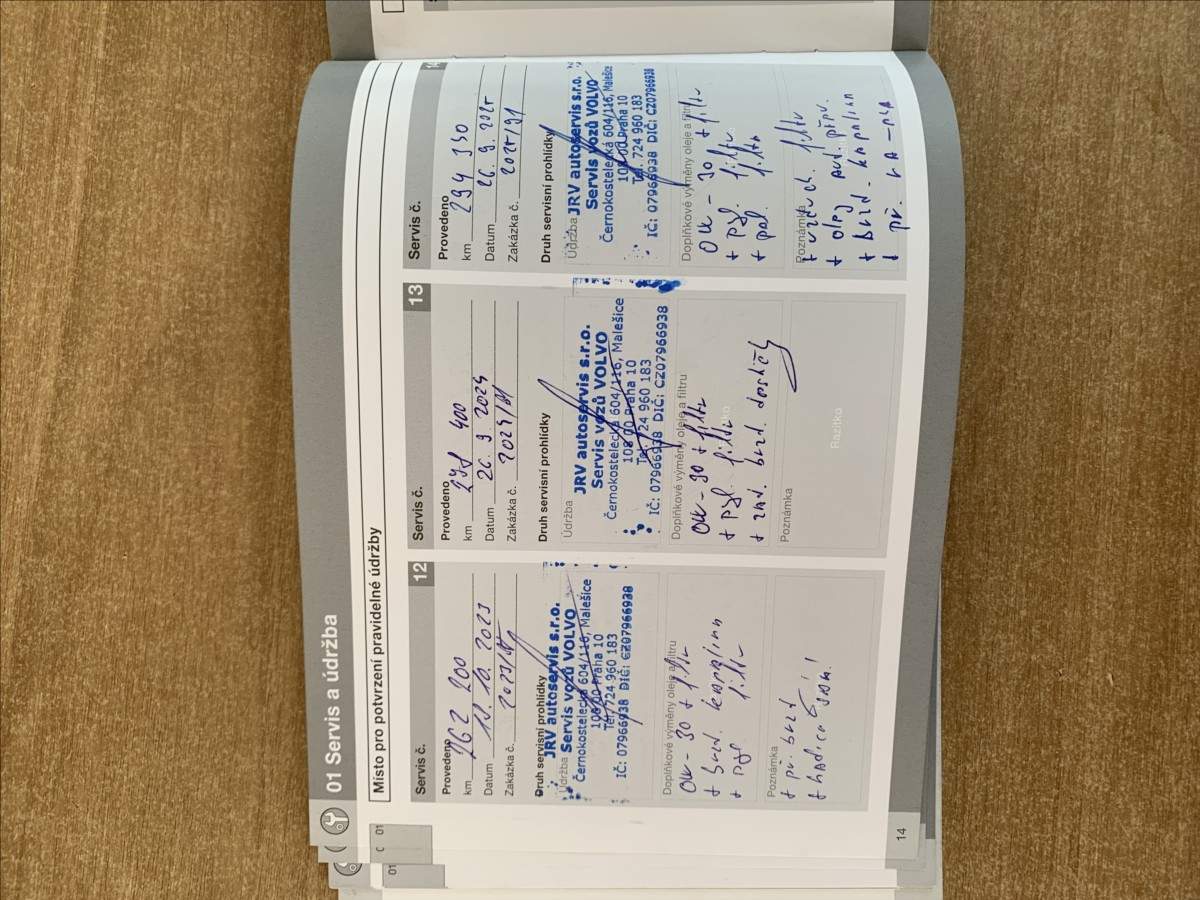 01 Servis a údržba
Místo pro potvrzení pravidelné údržby
Servis č. 12
Provedeno
km 262 200
Datum 11. 10. 2023
Zakázka č.
Druh servisní prohlídky
Údržba
JRV autoservis s.r.o.
Servis vozů VOLVO
Černokostelecká 604/116, Malešice
108 00 Praha 10
Tel. 724 960 183
IČ: 07966938 DIČ: CZ07966938
Doplňkové výměny oleje a filtru
0W-30 + filtr
+ brzd. kapalinn
+ pyl. filtr
Poznámka
+ př. brzd
+ hadice
Servis č. 13
Provedeno
km 278 400
Datum 26. 9. 2024
Zakázka č.
Druh servisní prohlídky
Údržba
JRV autoservis s.r.o.
Servis vozů VOLVO
Černokostelecká 604/116, Malešice
108 00 Praha 10
Tel. 724 960 183
IČ: 07966938 DIČ: CZ07966938
Doplňkové výměny oleje a filtru
0W-30 + filtr
+ pyl. filtr
+ zad. brzd. destičky
Poznámka
Razítko
Servis č.
Provedeno
km 294 330
Datum 26. 9. 2025
Zakázka č. 2025/91
Druh servisní prohlídky
Údržba
JRV autoservis s.r.o.
Servis vozů VOLVO
Černokostelecká 604/116, Malešice
108 00 Praha 10
Tel. 724 960 183
IČ: 07966938 DIČ: CZ07966938
Doplňkové výměny oleje a filtru
0W-30 + filtr
+ pyl. filtr
+ pal. filtr
Poznámka
+ vzduch. filtr
+ olej aut. přev.
+ brzd. kapalina
14
C 01
01